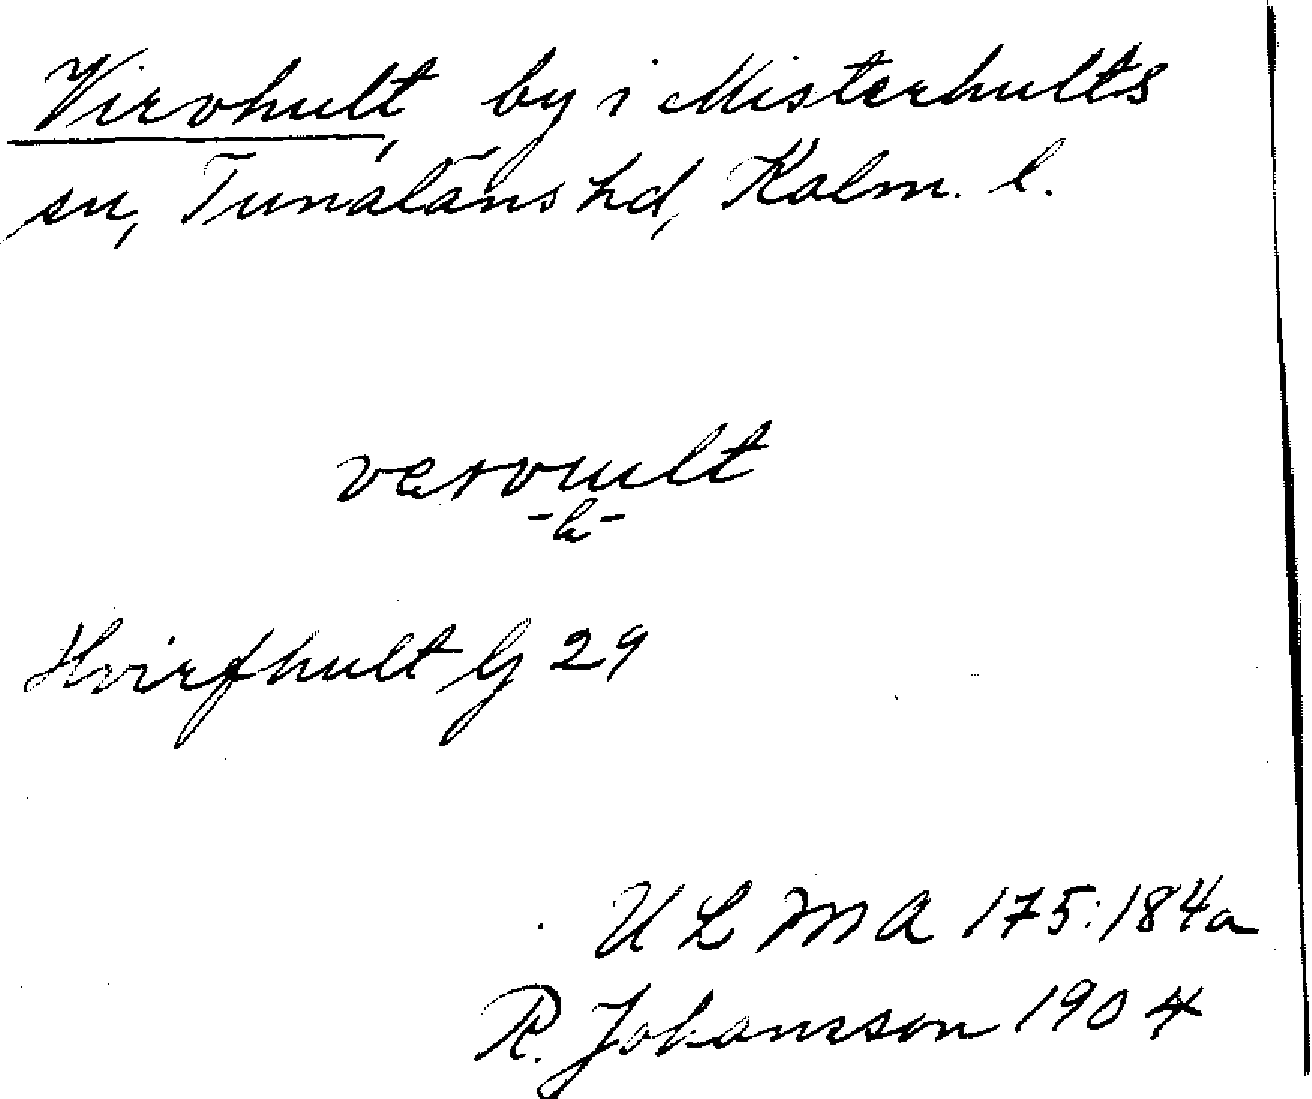 Virvhult, by i Misterhults
sn, Tunaläns hd, Kalm. l.
vervult
-h-
Hvirfhult G 29
ULMA 175:184a
R. Johansson 1904